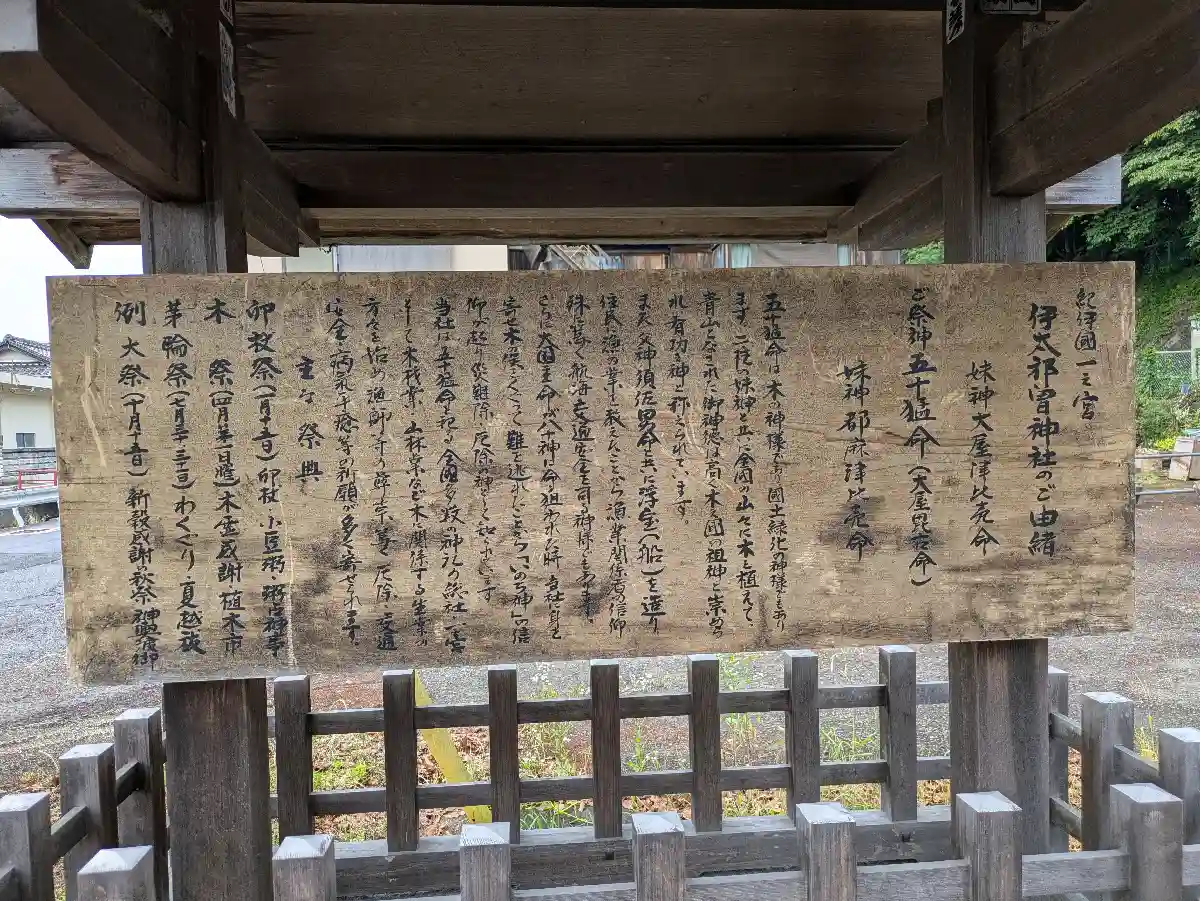 紀伊國一之宮
伊太祁曽神社のご由緒
妹神大屋津比売命
ご祭神五十猛命(大屋毘古命)
妹神都麻津比売命
五十猛命は木の神様であり國土緑化の神様でもあり
ます。二柱の妹神と共に全國の山々に木を植えて、
青山となされた御神徳は高く木の國の祖神と崇めら
れ有功の神と称えられています。
また父神須佐男命と共に浮宝(船)を造り
住民に漁の業を教えんことから漁業関係者の信仰
殊に篤く航海、交通安全を司る神様でもあります。
さらに大国主命が八十神に命を狙われた時、当社に身を
寄せ木の俣をくぐって難を逃れたことから「いのち神」の信
仰が起り災難除、厄除神としても知られています
当社は五十猛命を祀る全國多数の神社の総社の宮
そして木材業、山林業など木に関係する生業の
方々を始め漁師の方々の
安全、病気平癒等の祈願が多く寄せられます。
主な祭典
卯杖祭(一月十五日)卯杖、小豆粥・粥占神事
木祭(四月第一日曜)木霊感謝植木市
茅輪祭(七月三十・三十一日)わくぐり・夏越祓
例大祭(十月十五日)新穀感謝秋祭神輿渡御